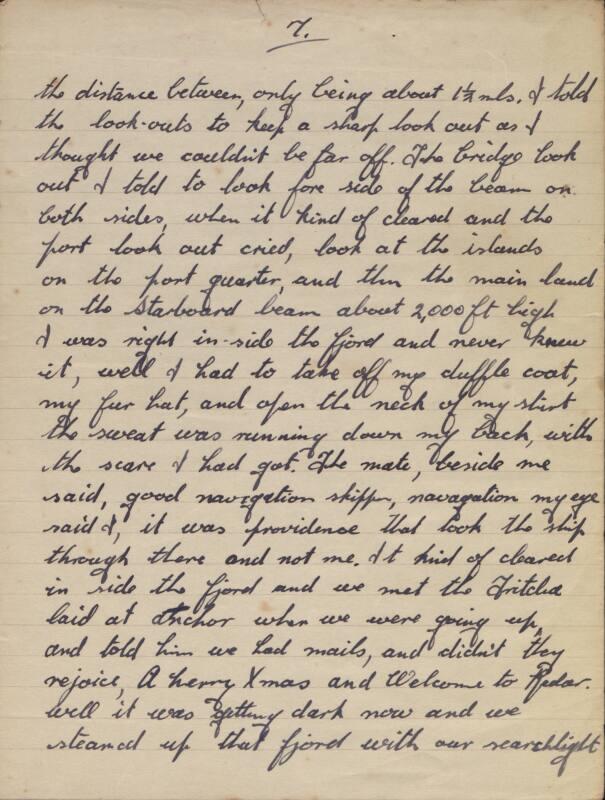 7.
the distance between, only being about 1½ mls. I told
the look-outs to keep a sharp look out as I
thought we couldn't be far off. The bridge look
out I told to look fore side of the beam on
both sides, when it kind of cleared and the
port look out cried, look at the islands
on the port quarter, and then the main land
on the starboard beam about 2,000 ft high
I was right in-side the fjord and never knew
it, well I had to take off my duffle coat,
my fur hat, and open the neck of my shirt
the sweat was running down my back, with
the scare I had got. The mate, beside me
said, good navigation skipper, navagation my eye
said I, it was providence that took the ship
through there and not me. It kind of cleared
in side the fjord and we met the
laid at anchor when we were going up,
and told him we had mails, and didn't they
rejoice, A herry Xmas and Welcome to
well it was getting dark now and we
steamed up that fjord with our searchlight